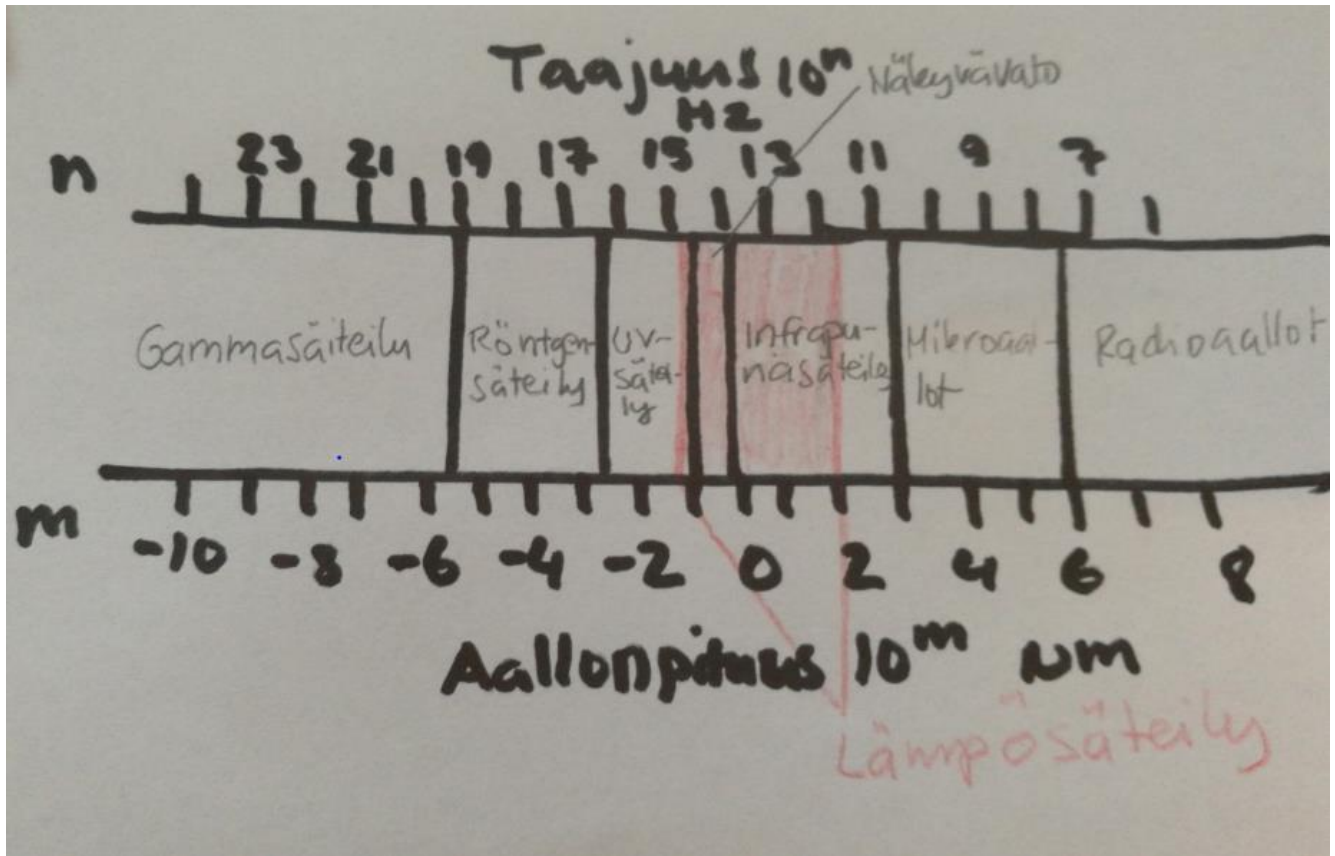 Taajuus 10ⁿ
Hz
Näkyvävalo
n
23 21 19 17 15 13 11 9 7
Gammasäiteily
Röntgen-
säteily
UV-
sätei-
ly
Infrapu-
näsäteily
Mikroaa-
lot
Radioaallot
m
-10 -8 -6 -4 -2 0 2 4 6 8
Aallonpituus 10ᵐ Nm
Lämpösäteily